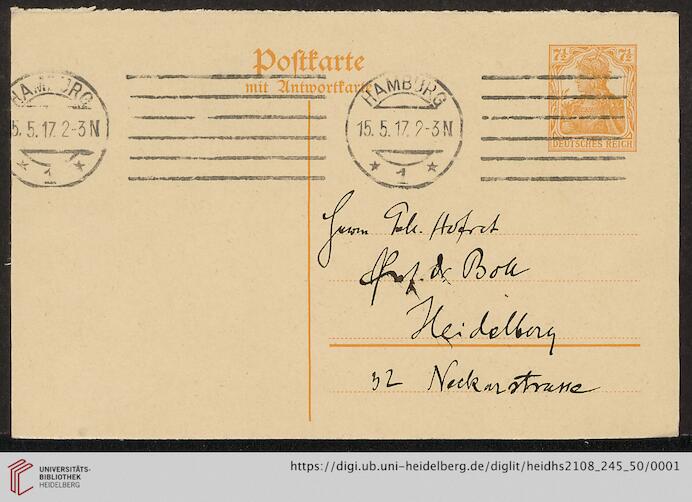 Postkarte
mit Antwortkarte
HAMBURG
15.5.17.2-3N
1
HAMBURG
15.5.17.2-3N
1
7½ 7½
DEUTSCHES REICH
Herrn Geh. Hofrat
Prof. Dr. Boll
Heidelberg
32 Neckarstrasse
UNIVERSITÄTS-
BIBLIOTHEK
HEIDELBERG
https://digi.ub.uni-heidelberg.de/diglit/heidhs2108_245_50/0001